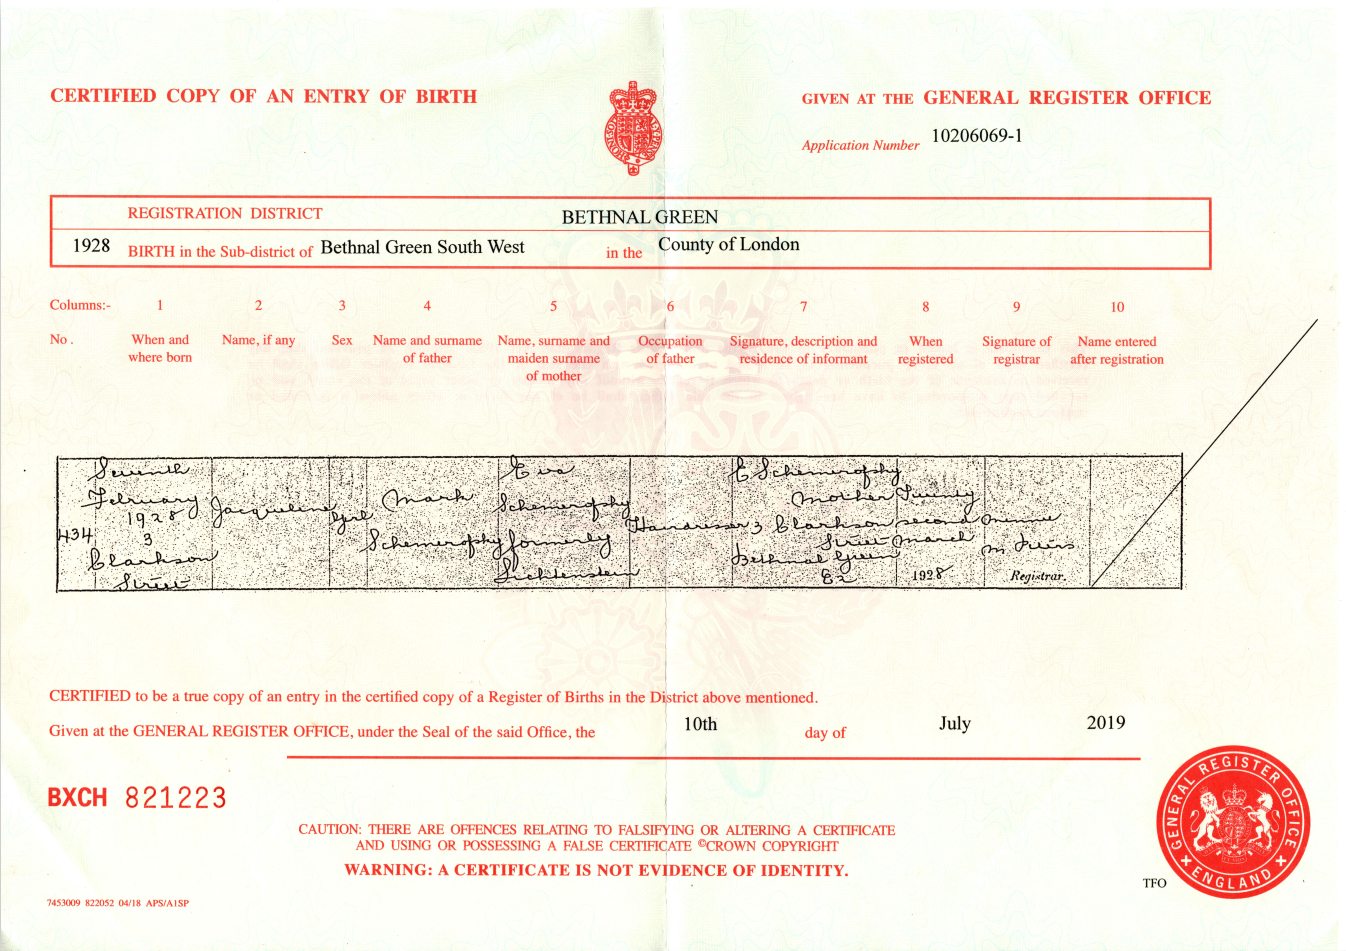 CERTIFIED COPY OF AN ENTRY OF BIRTH
GIVEN AT THE GENERAL REGISTER OFFICE
Application Number 10206069-1
REGISTRATION DISTRICT BETHNAL GREEN
1928 BIRTH in the Sub-district of Bethnal Green South West in the County of London
Columns:- 1 2 3 4 5 6 7 8 9 10
No. When and where born
Name, if any
Sex
Name and surname of father
Name, surname and maiden surname of mother
Occupation of father
Signature, description and residence of informant
When registered
Signature of registrar
Name entered after registration
434
Seventh
February
1928
3
Clarkson
Street
Jacqueline
Girl
Mark
Schemerofsky
Eva
Schemerofsky
formerly
Lichtenstein
Hairdresser
E Schemerofsky
Mother
3 Clarkson
Street
Bethnal Green
E2
Twenty
second
March
1928
Minnie
M
Registrar.
CERTIFIED to be a true copy of an entry in the certified copy of a Register of Births in the District above mentioned.
Given at the GENERAL REGISTER OFFICE, under the Seal of the said Office, the 10th day of July 2019
BXCH 821223
CAUTION: THERE ARE OFFENCES RELATING TO FALSIFYING OR ALTERING A CERTIFICATE
AND USING OR POSSESSING A FALSE CERTIFICATE ©CROWN COPYRIGHT
WARNING: A CERTIFICATE IS NOT EVIDENCE OF IDENTITY.
GENERAL REGISTER OFFICE
ENGLAND
TFO
7453009 822052 04/18 APS/A1SP